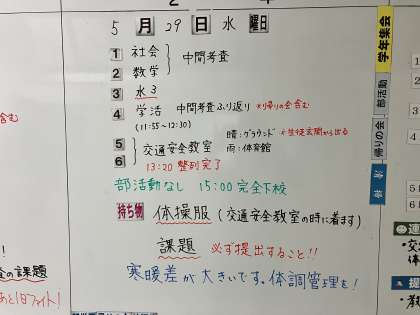 5 月 29 日 水 曜日
1 社会
2 数学
中間考査
3 水3
4 学活 中間考査ふり返り ※帰りの会含む
(11:55~12:30)
5
6
交通安全教室
晴:グラウンド ※生徒玄関から出る
雨:体育館
13:20 整列完了
部活動なし 15:00 完全下校
持ち物 体操服 (交通安全教室の時に着ます)
課題 必ず提出すること!!
寒暖差が大きいです。体調管理を!
学年集会
部活動
帰りの会
含む
査の課題
あと1日ファイト!